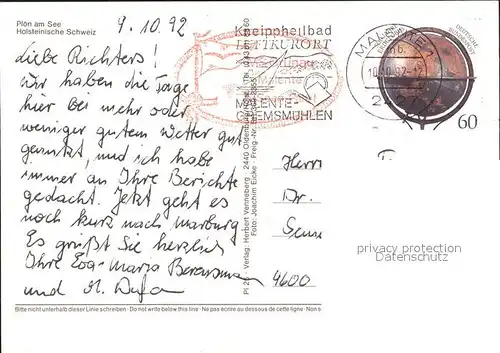 Plön am See
Holsteinische Schweiz
9.10.92
Liebe Richters!
Wir haben die Tage
hier bei mehr oder
weniger gutem Wetter gut
genutzt, und ich habe
immer an Ihre Berichte
gedacht. Jetzt geht es
noch kurz nach Marburg
Es grüßt Sie herzlich
Ihre Eva-Maria
und
Bitte nicht unterhalb dieser Linie schreiben - Do not write below this line - Ne pas ecrire au dessous de cette ligne - Non s
Verlag: Herbert Venneberg · 2440 Oldenburg
Foto: Joachim Eicke - Freig.-Nr.
Kneippheilbad
LUFTKURORT
MALENTE-
GREMSMÜHLEN
MALENTE
DEUTSCHE
BUNDESPOST
60
Herrn
Dr.
4600
privacy protection
Datenschutz